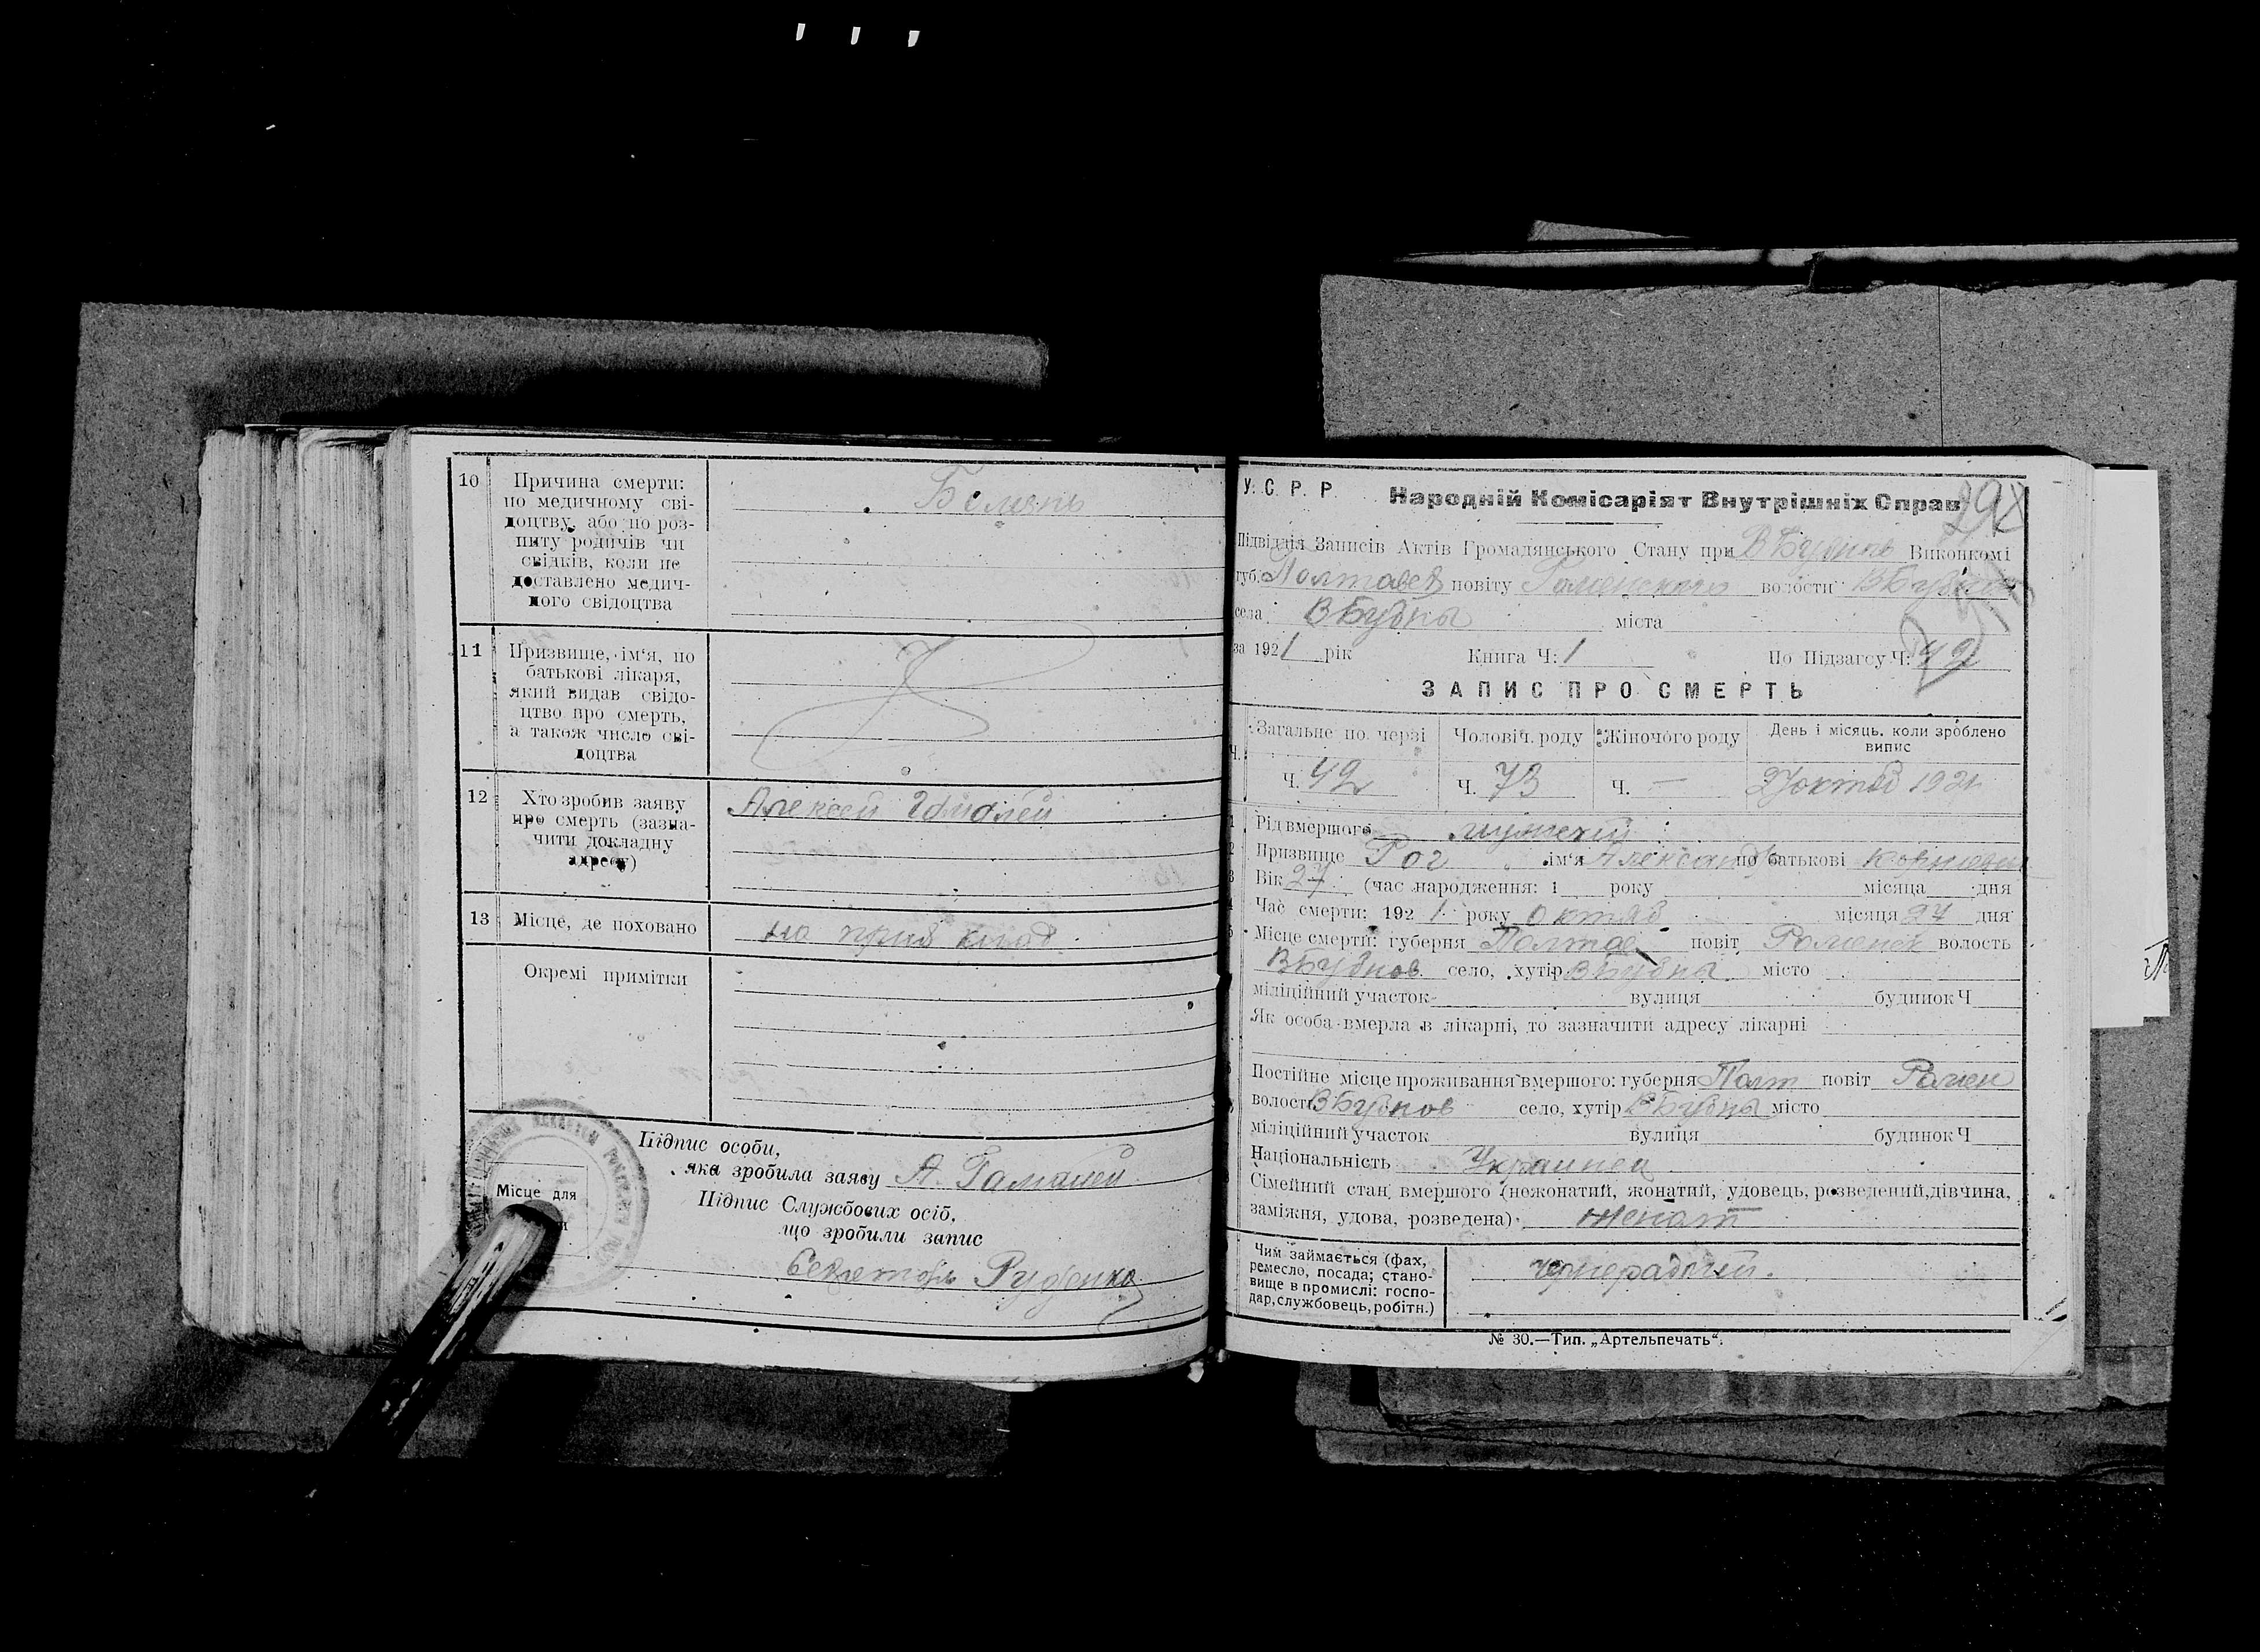 10 Причина смерти: по медичному сві-
доцтву, або по роз-
питу родичів чи
свідків, коли не
доставлено медич-
ного свідоцтва
11 Призвище, ім'я, по
батькові лікаря,
який видав свідо-
цтво про смерть,
а також число сві-
доцтва
12 Хто зробив заяву
про смерть (зазна-
чити докладну
адресу)
Алексей Гамалей
13 Місце, де поховано на прих клад.
Окремі примітки
Підпис особи,
яка зробила заяву А. Гамалей
Місце для
Підпис Службових осіб,
що зробили запис
Секретарь Руденко
У. С. Р. Р. Народній Комісаріят Внутрішніх Справ
Підвідділ Записів Актів Громадянського Стану при Виконкомі
губ. Полтавск повіту Роменского волости
села ВБубны міста
за 1921 рік Книга Ч: 1 По Підзагсу Ч: 42
ЗАПИС ПРО СМЕРТЬ
Загальне по черзі Чоловіч. роду Жіночого роду День і місяць. коли зроблено
випис
Ч. 42 Ч. 73 Ч. — 27 октяб 1921
Рід вмершого мужской
Призвище Рог ім'я Александр по батькові
Вік 27 (час народження: 1 року місяца дня
Час смерти: 1921 року октяб місяця 27 дня
Місце смерти: губерня Полтав повіт Роменск волость
ВБубнов село, хутір ВБубны місто
міліційний участок вулиця будинок Ч
Як особа вмерла в лікарні, то зазначити адресу лікарні
Постійне місце проживання вмершого: губерня Полт повіт Ромен
волость ВБубнов село, хутір ВБубны місто
міліційний участок вулиця будинок Ч
Національність Украинец
Сімейний стан вмершого (нежонатий, жонатий, удовець, розведений, дівчина,
заміжня, удова, розведена) женат
Чим займається (фах,
ремесло, посада; стано-
вище в промислі: госпо-
дар, службовець, робітн.)
чернерабочий.
№ 30.—Тип. „Артельпечать“.